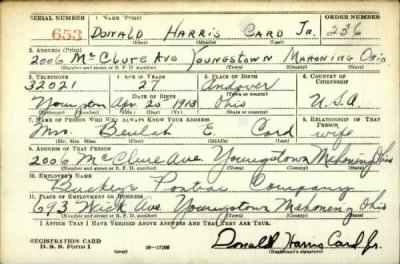 SERIAL NUMBER 1. NAME (Print) ORDER NUMBER
653 DONALD HARRIS CARD JR. 236
(First) (Middle) (Last)
2. ADDRESS (Print)
2006 McClure Ave Youngstown Mahoning Ohio
(Number and street or R. F. D. number) (Town) (County) (State)
3. TELEPHONE 4. AGE IN YEARS 5. PLACE OF BIRTH 6. COUNTRY OF CITIZENSHIP
32021 27 Andover
DATE OF BIRTH (Town or county)
Youngstown Apr 25 1913 Ohio U.S.A.
(Exchange) (Number) (Mo.) (Day) (Yr.) (State or country)
7. NAME OF PERSON WHO WILL ALWAYS KNOW YOUR ADDRESS 8. RELATIONSHIP OF THAT PERSON
Mrs. Beulah E. Card wife
(Mr., Mrs., Miss) (First) (Middle) (Last)
9. ADDRESS OF THAT PERSON
2006 McClure Ave Youngstown Mahoning Ohio
(Number and street or R. F. D. number) (Town) (County) (State)
10. EMPLOYER'S NAME
Buckeye Pontiac Company
11. PLACE OF EMPLOYMENT OR BUSINESS
693 Wick Ave Youngstown Mahoning Ohio
(Number and street or R. F. D. number) (Town) (County) (State)
I AFFIRM THAT I HAVE VERIFIED ABOVE ANSWERS AND THAT THEY ARE TRUE.
REGISTRATION CARD
D. S. S. FORM 1 (over) 16—17105 Donald Harris Card Jr.
(Registrant's signature)